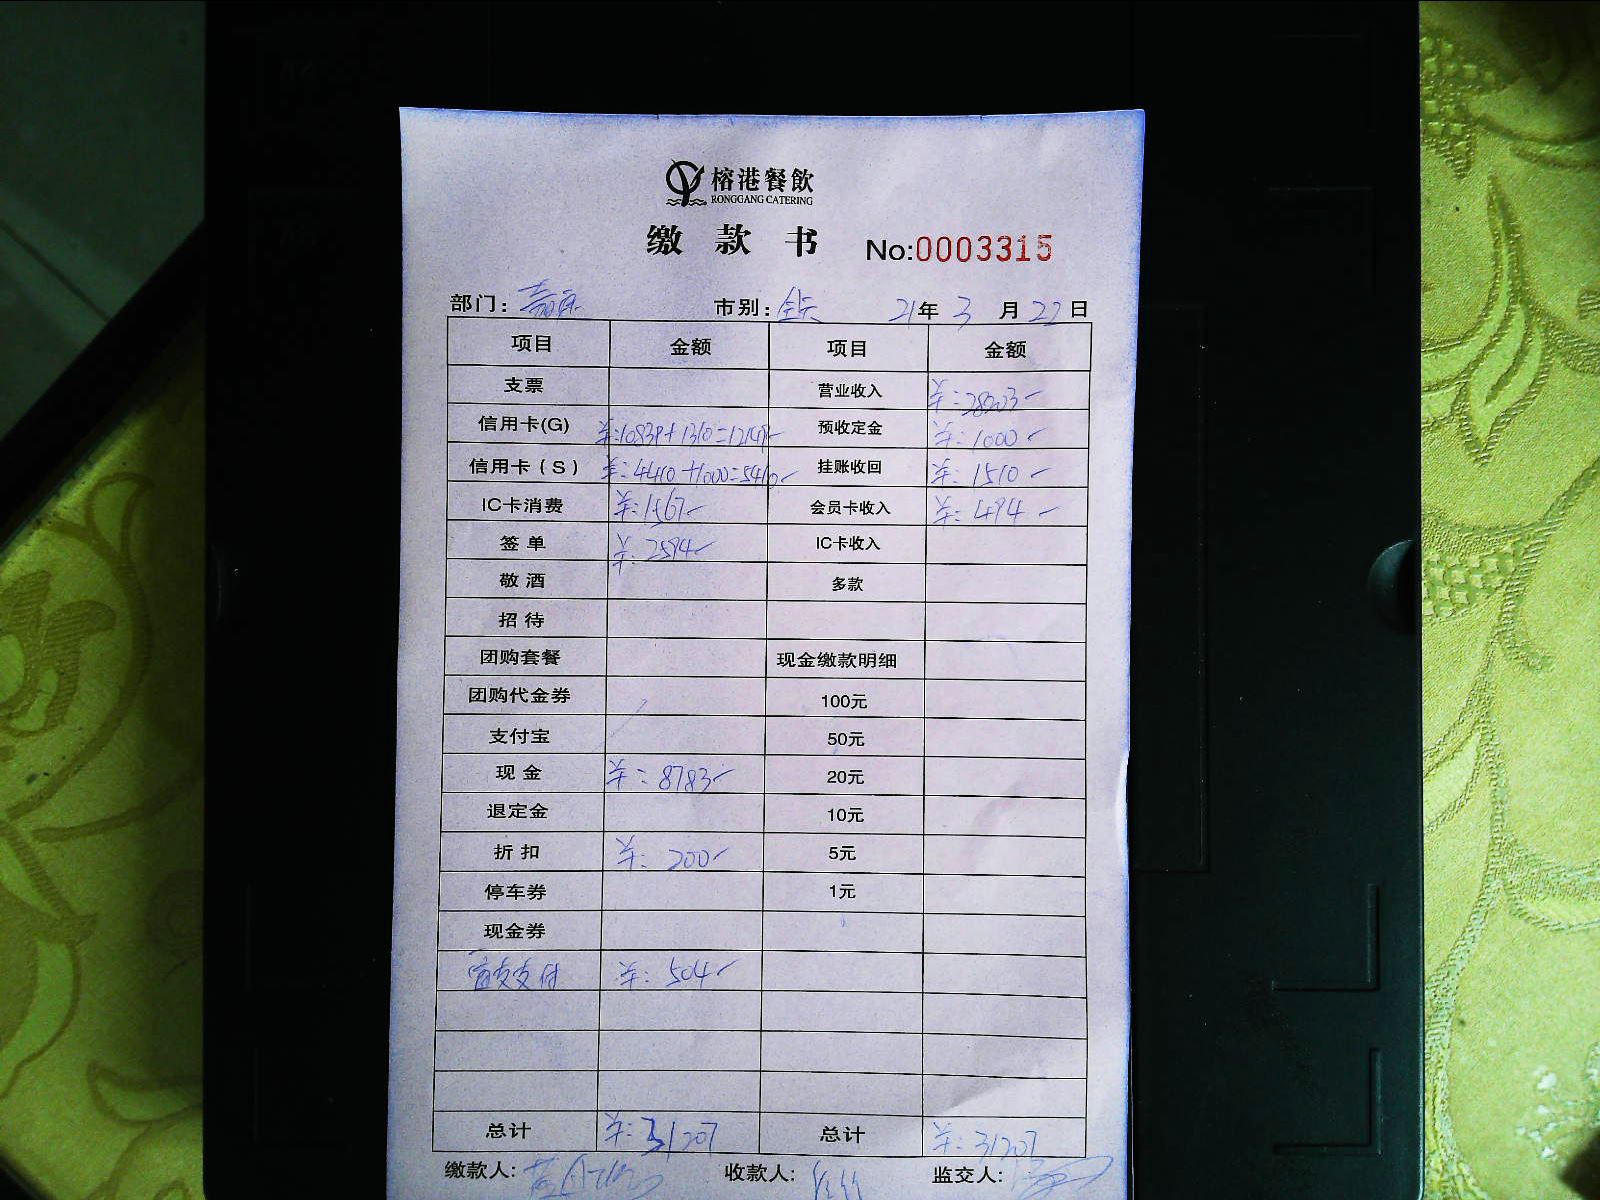 榕港餐飲
RONGGANG CATERING
缴款书 No:0003315
部门: 市别:全天 21年3月22日
项目 金额 项目 金额
支票 营业收入 羊:28203-
信用卡(G) 羊:10839+1310=12149- 预收定金 羊:1000-
信用卡(S) 羊:4410+1000=5410- 挂账收回 羊:1510-
IC卡消费 羊:1567- 会员卡收入 羊:494-
签单 羊:2594- IC卡收入
敬酒 多款
招待
团购套餐 现金缴款明细
团购代金券 100元
支付宝 50元
现金 羊:8783- 20元
退定金 10元
折扣 羊:200- 5元
停车券 1元
现金券
支付 羊:504-
总计 羊:31207 总计 羊:31207
缴款人: 收款人: 监交人: